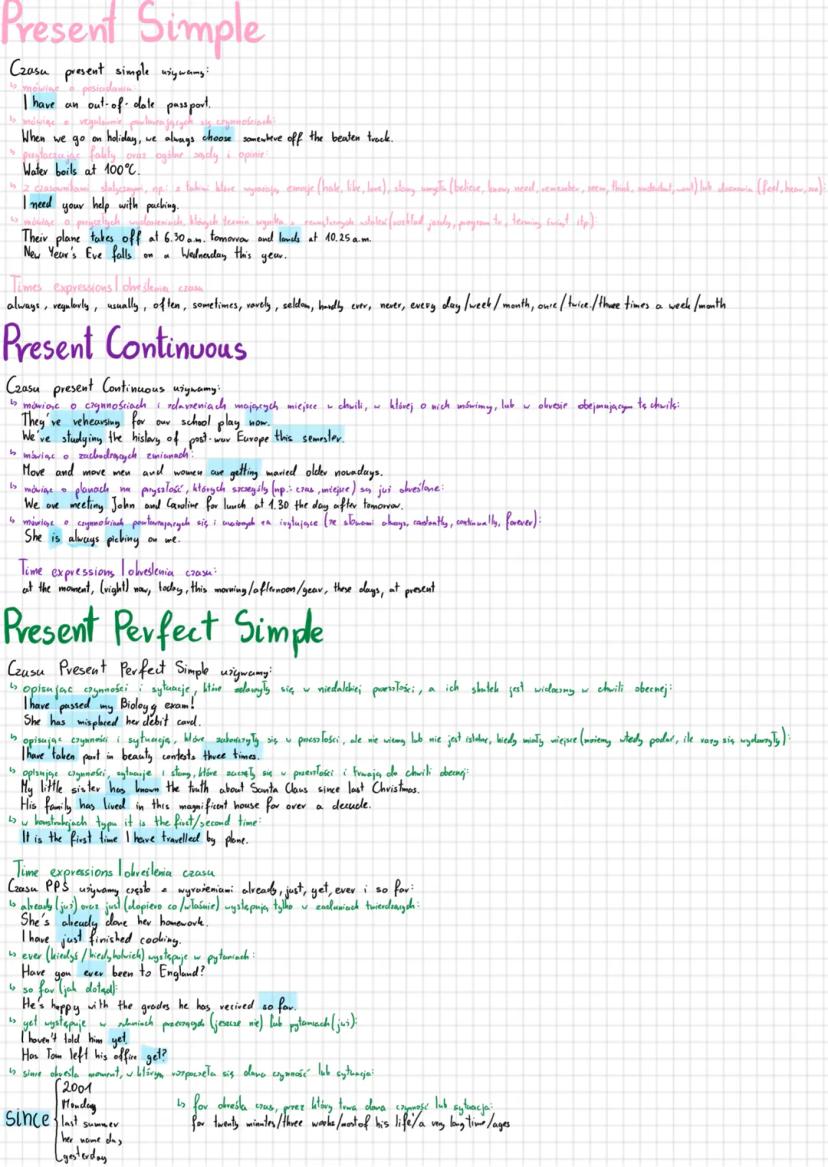 Present Simple
Czasu present simple używamy:
↳ mówiąc o posiadaniu
I have an out-of-date passport.
↳ mówiąc o regularnie powtarzających się czynnościach:
When we go on holiday, we always choose somewhere off the beaten track.
↳ przytaczając fakty oraz ogólne sądy i opinie:
Water boils at 100°C.
↳ z czasownikami statycznymi, np.: z takimi które wyrażają emocje (hate, like, love), stany umysłu (believe, know, need, remember, seem, think, understand, want) lub doznania (feel, hear, see):
I need your help with packing.
↳ mówiąc o przyszłych wydarzeniach, których termin wynika z zewnętrznych ustaleń (rozkład jazdy, program tv, terminy świąt itp):
Their plane takes off at 6.30 a.m. tomorrow and lands at 10.25 a.m.
New Year's Eve falls on a Wednesday this year.
Times expressions | określenia czasu
always, regularly, usually, often, sometimes, rarely, seldom, hardly ever, never, every day/week/month, once/twice/three times a week/month
Present Continuous
Czasu present Continuous używamy:
↳ mówiąc o czynnościach i zdarzeniach mających miejsce w chwili, w której o nich mówimy, lub w okresie obejmującym tę chwilę:
They're rehearsing for our school play now.
We've studying the history of post-war Europe this semester.
↳ mówiąc o zachodzących zmianach:
More and more men and women are getting maried older nowadays.
↳ mówiąc o planach na przyszłość, których szczegóły (np.: czas, miejsce) są już określone:
We are meeting John and Caroline for lunch at 1.30 the day after tomorrow.
↳ mówiąc o czynnościach powtarzających się i uważanych za irytujące (ze słowami always, constantly, continually, forever):
She is always picking on me.
Time expressions | określenia czasu:
at the moment, (right) now, today, this morning/afternoon/year, these days, at present
Present Perfect Simple
Czasu Present Perfect Simple używamy:
↳ opisując czynności i sytuacje, które zdarzyły się w niedalekiej przeszłości, a ich skutek jest widoczny w chwili obecnej:
I have passed my Biology exam!
She has misplaced her debit card.
↳ opisując czynności i sytuacje, które zakończyły się w przeszłości, ale nie wiemy lub nie jest istotne, kiedy miały miejsce (możemy wtedy podać, ile razy się wydarzyły):
I have taken part in beauty contests three times.
↳ opisując czynności, sytuacje i stany, które zaczęły się w przeszłości i trwają do chwili obecnej:
My little sister has known the truth about Santa Claus since last Christmas.
His family has lived in this magnificent house for over a decade.
↳ w konstrukcjach typu it is the first/second time:
It is the first time I have travelled by plane.
Time expressions | określenia czasu
Czasu PPS używamy często z wyrażeniami already, just, yet, ever i so far:
↳ already (już) oraz just (dopiero co/właśnie) występują tylko w zdaniach twierdzących:
She's already done her homework.
I have just finished cooking.
↳ ever (kiedyś/kiedykolwiek) występuje w pytaniach:
Have you ever been to England?
↳ so far (jak dotąd):
He's happy with the grades he has recived so far.
↳ yet występuje w zdaniach przeczących (jeszcze nie) lub pytaniach (już):
I haven't told him yet.
Has Tom left his office yet?
↳ since określa moment, w którym rozpoczęła się dana czynność lub sytuacja:
since
2001
Monday
last summer
her name day
yesterday
↳ for określa czas, przez który trwa dana czynność lub sytuacja:
for twenty minutes/three weeks/most of his life/a very long time/ages